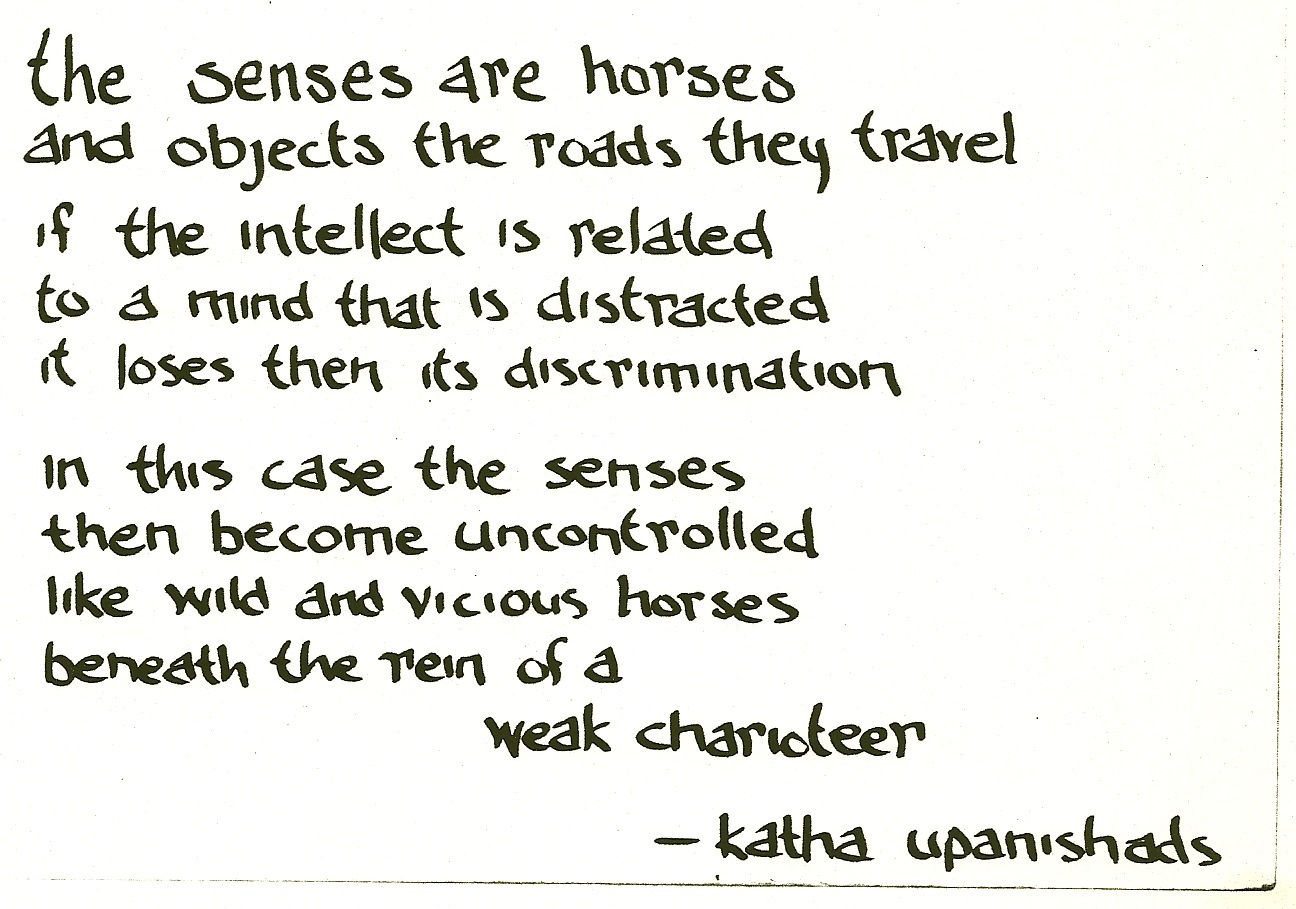 the senses are horses
and objects the roads they travel
if the intellect is related
to a mind that is distracted
it loses then its discrimination
in this case the senses
then become uncontrolled
like wild and vicious horses
beneath the rein of a
weak charioteer
– katha upanishads